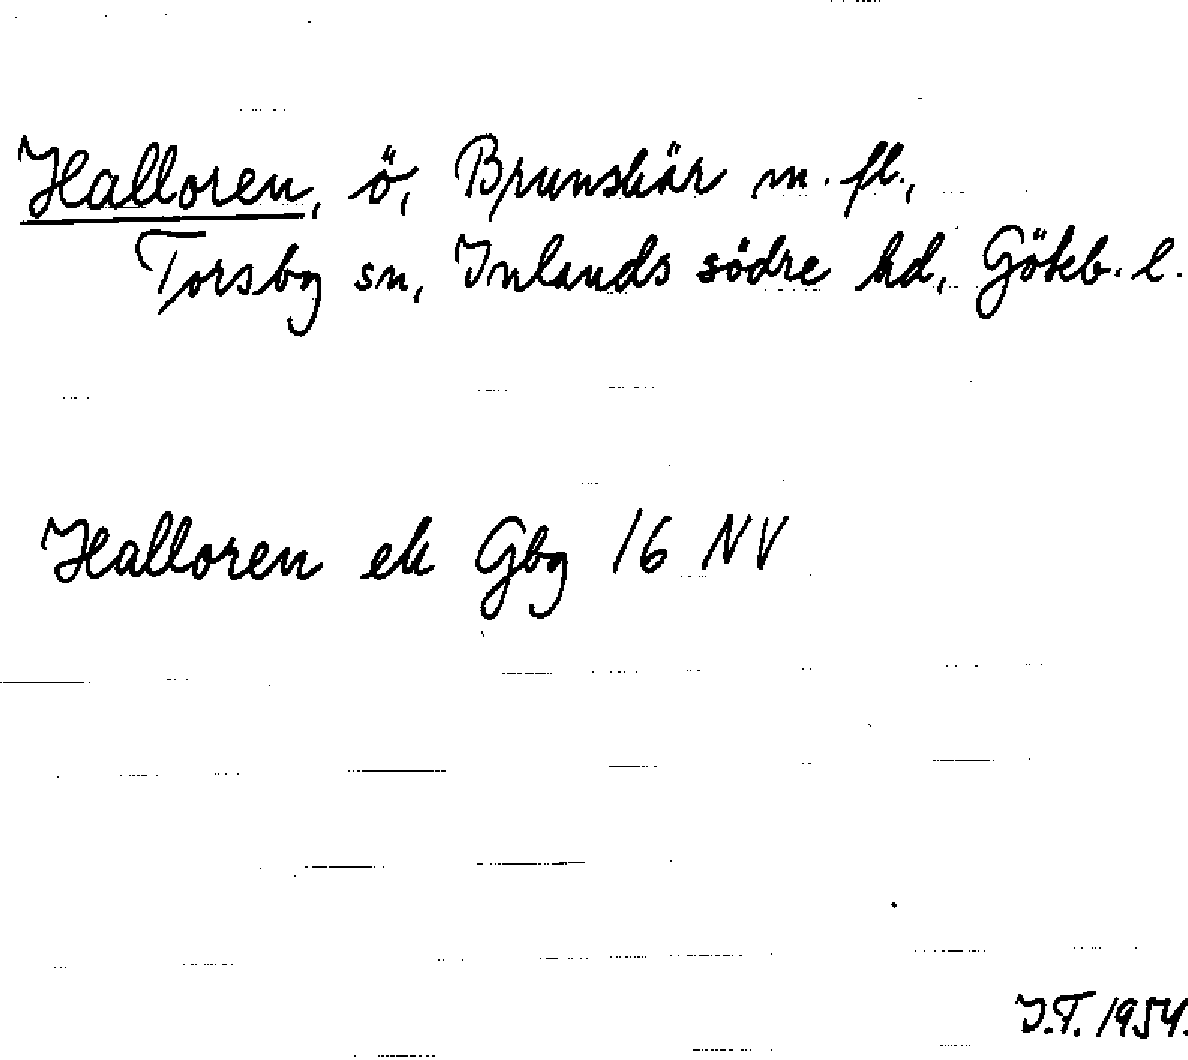 Halloren, ö, Brunskär m. fl.,
Torsby sn, Inlands södre hd, Göteb. l.
Halloren ek Gbg 16 NV
I.T. 1954.